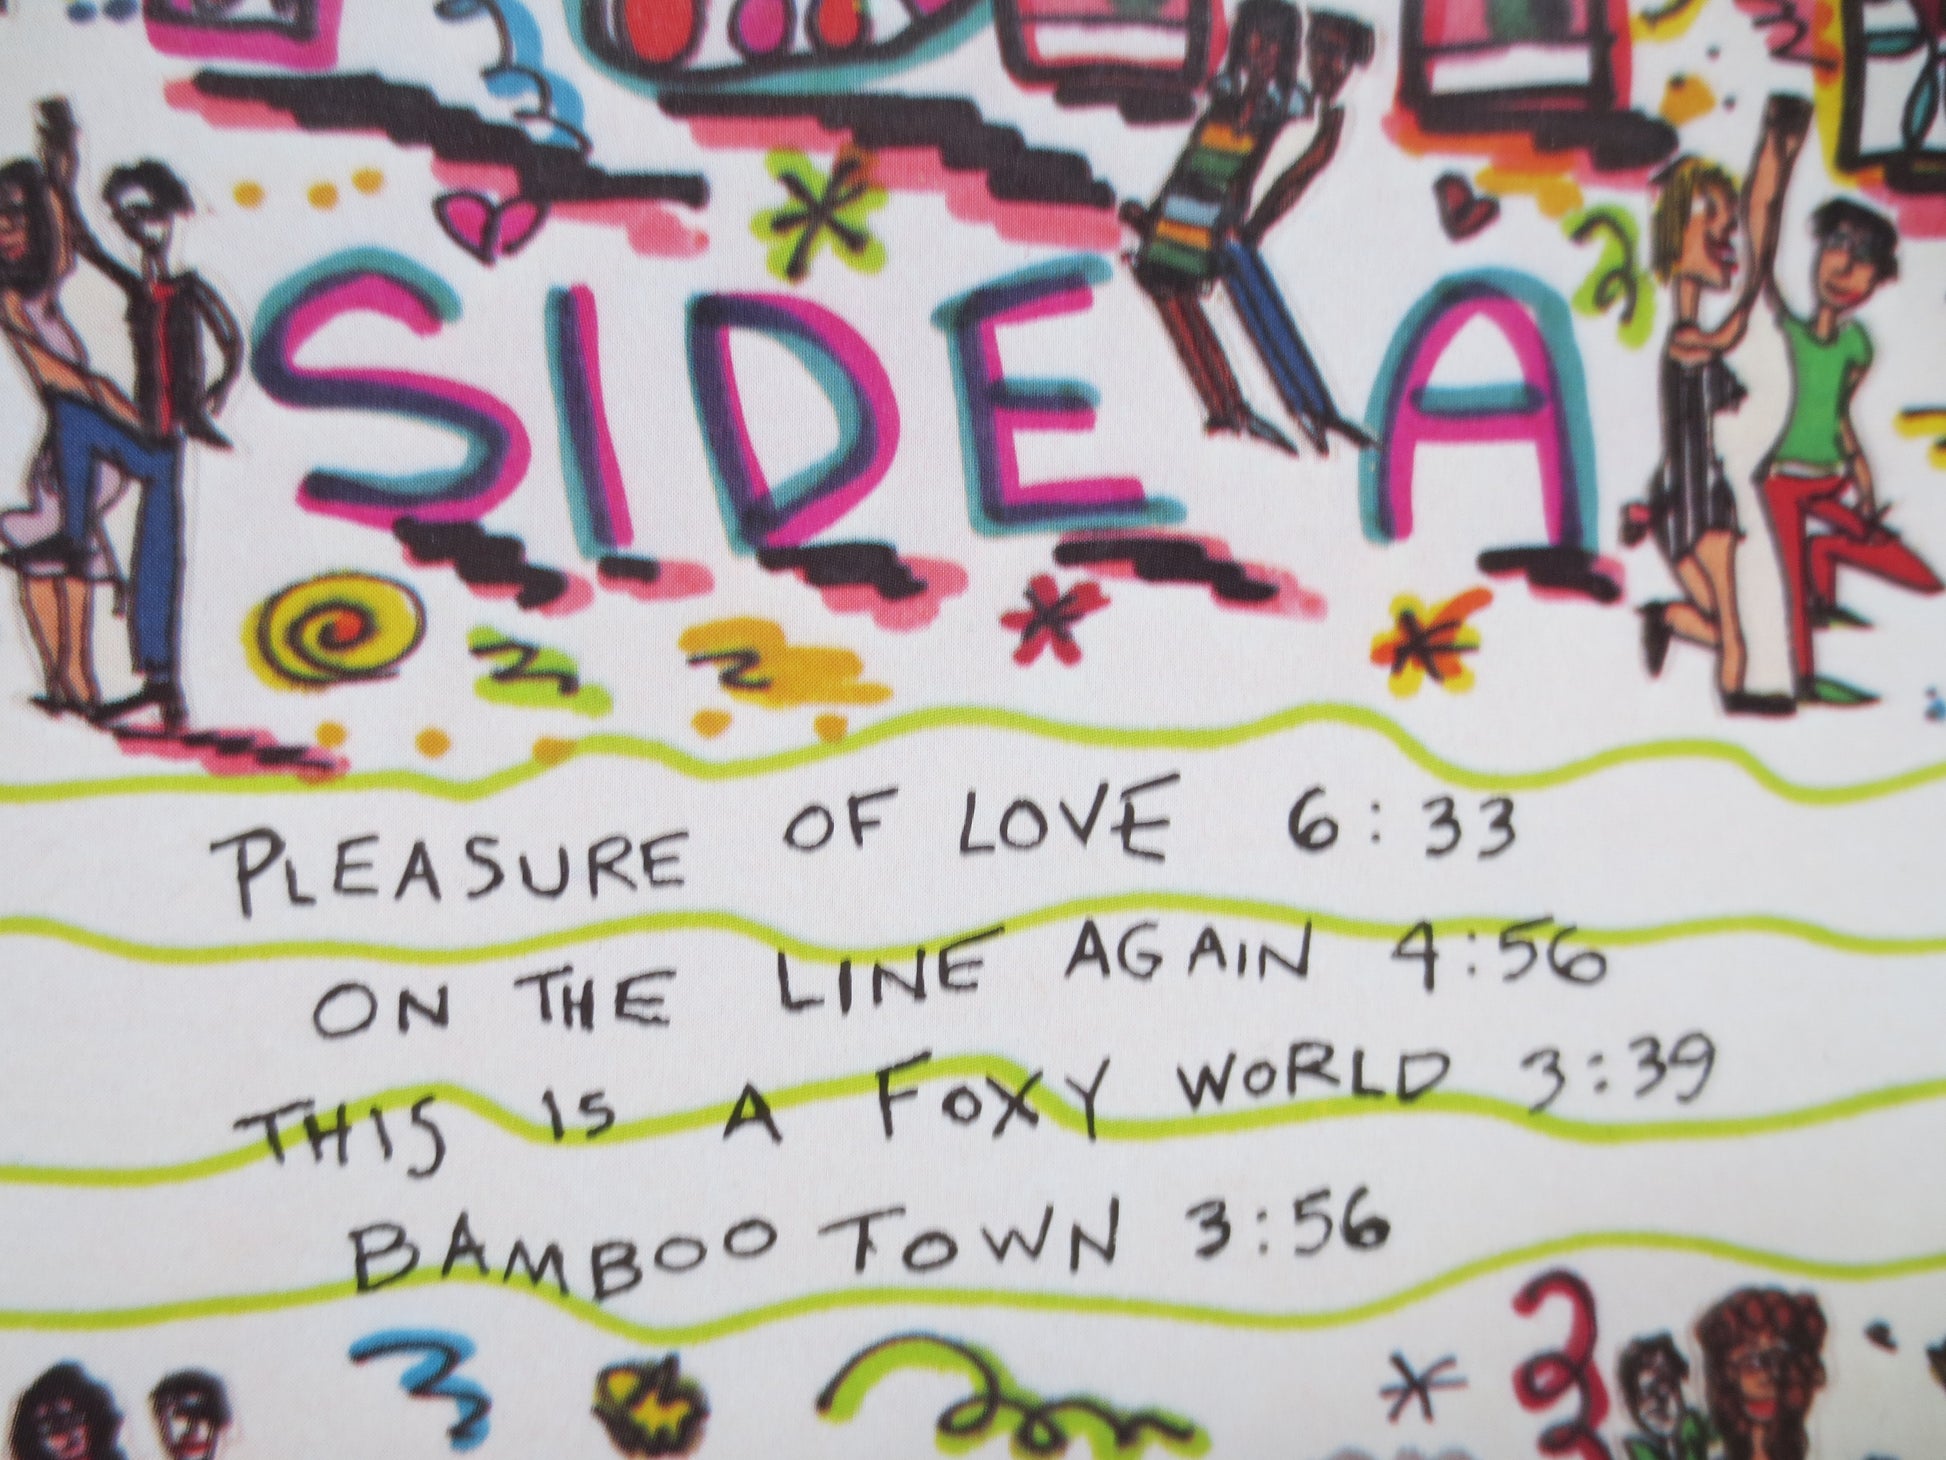 SIDE A
PLEASURE OF LOVE 6:33
ON THE LINE AGAIN 4:56
THIS IS A FOXY WORLD 3:39
BAMBOO TOWN 3:56